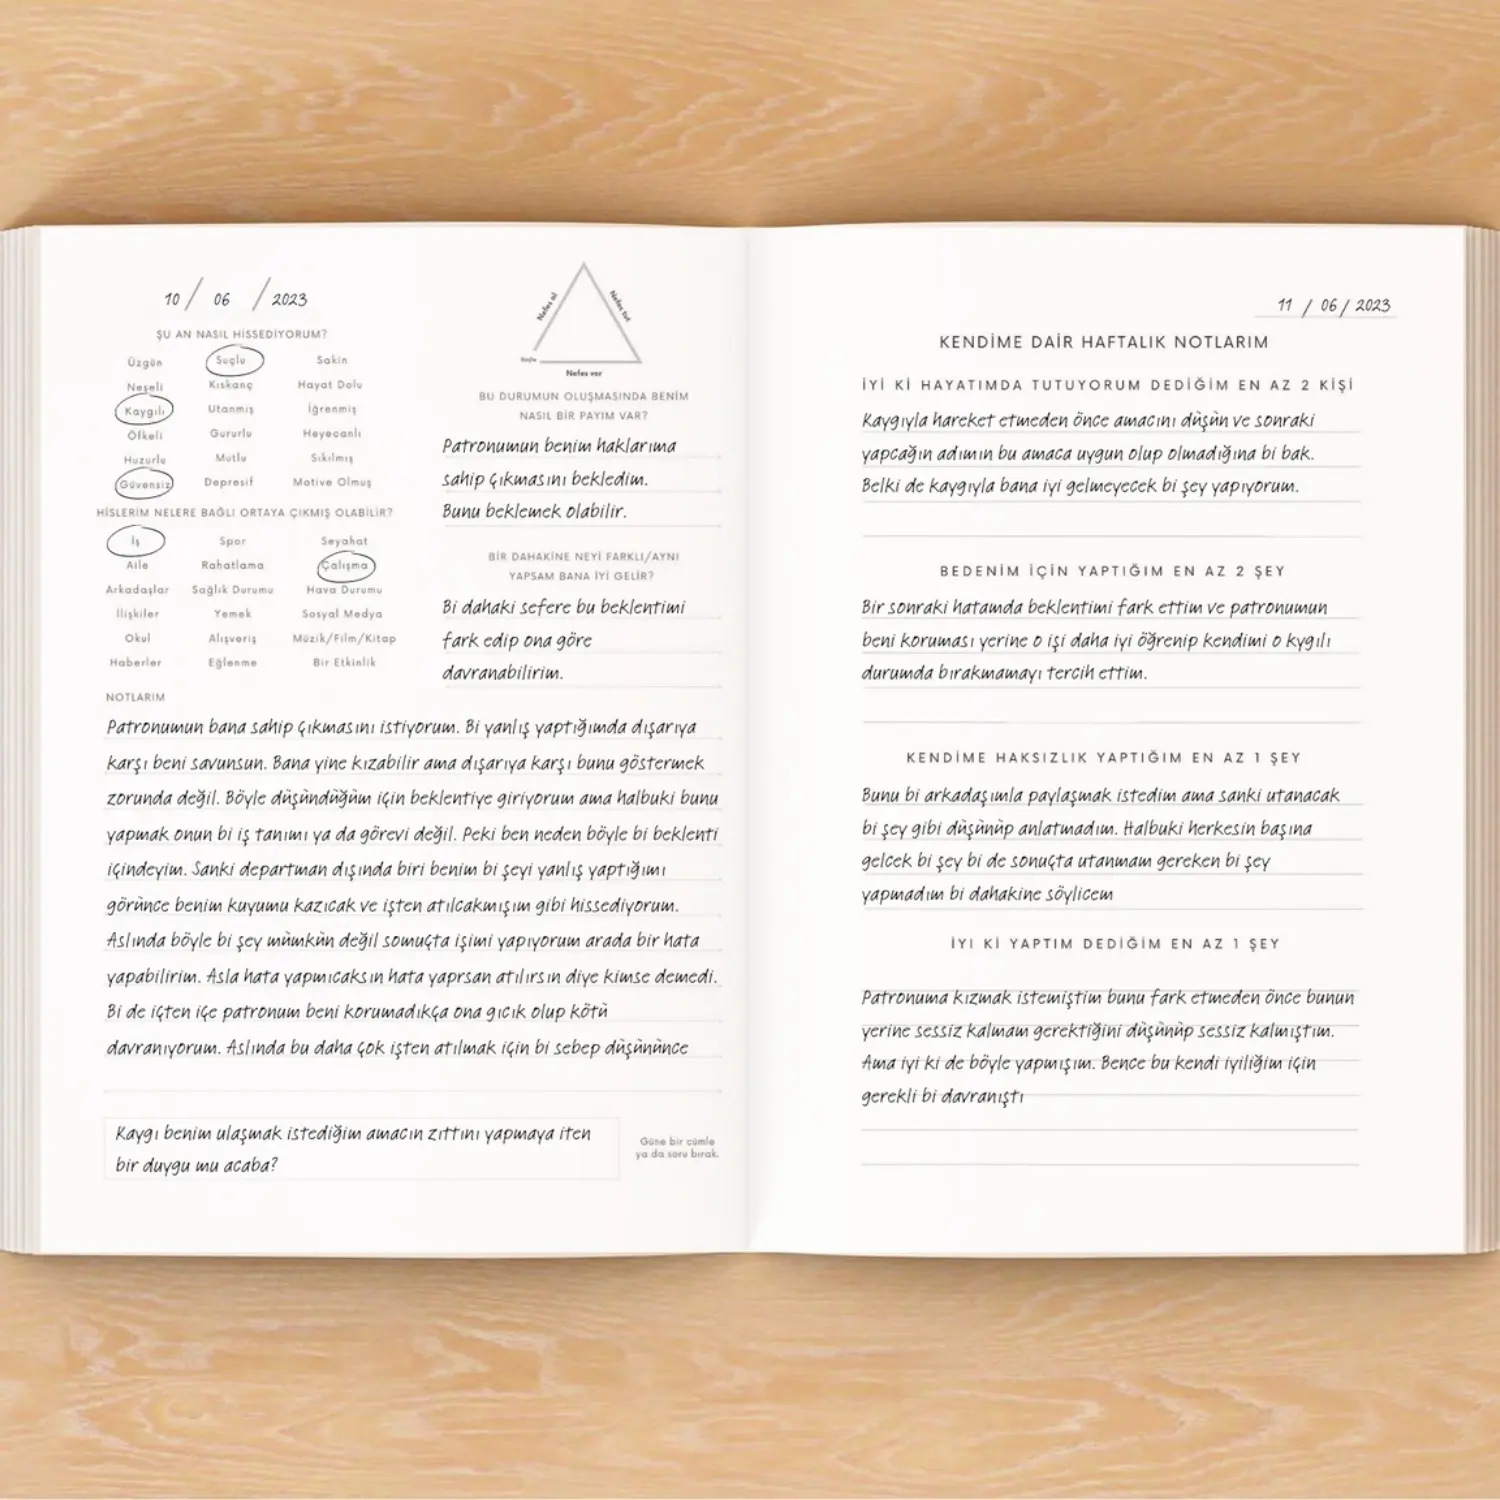 10 / 06 / 2023
ŞU AN NASIL HİSSEDİYORUM?
Üzgün Suçlu Sakin
Neşeli Kıskanç Hayat Dolu
Kaygılı Utanmış İğrenmiş
Öfkeli Gururlu Heyecanlı
Huzurlu Mutlu Sıkılmış
Güvensiz Depresif Motive Olmuş
HİSLERİM NELERE BAĞLI ORTAYA ÇIKMIŞ OLABİLİR?
İş Spor Seyahat
Aile Rahatlama Çalışma
Arkadaşlar Sağlık Durumu Hava Durumu
İlişkiler Yemek Sosyal Medya
Okul Alışveriş Müzik/Film/Kitap
Haberler Eğlenme Bir Etkinlik
Nefes al
Nefes tut
Başla
Nefes ver
BU DURUMUN OLUŞMASINDA BENİM
NASIL BİR PAYIM VAR?
Patronumun benim haklarıma
sahip çıkmasını bekledim.
Bunu beklemek olabilir.
BİR DAHAKİNE NEYİ FARKLI/AYNI
YAPSAM BANA İYİ GELİR?
Bi dahaki sefere bu beklentimi
fark edip ona göre
davranabilirim.
NOTLARIM
Patronumun bana sahip çıkmasını istiyorum. Bi yanlış yaptığımda dışarıya
karşı beni savunsun. Bana yine kızabilir ama dışarıya karşı bunu göstermek
zorunda değil. Böyle düşündüğüm için beklentiye giriyorum ama halbuki bunu
yapmak onun bi iş tanımı ya da görevi değil. Peki ben neden böyle bi beklenti
içindeyim. Sanki departman dışında biri benim bi şeyi yanlış yaptığımı
görünce benim kuyumu kazıcak ve işten atılcakmışım gibi hissediyorum.
Aslında böyle bi şey mümkün değil somuçta işimi yapıyorum arada bir hata
yapabilirim. Asla hata yapmıcaksın hata yaprsan atılırsın diye kimse demedi.
Bi de içten içe patronum beni korumadıkça ona gıcık olup kötü
davranıyorum. Aslında bu daha çok işten atılmak için bi sebep düşününce
Kaygı benim ulaşmak istediğim amacın zıttını yapmaya iten
bir duygu mu acaba?
Güne bir cümle
ya da soru bırak.
11 / 06 / 2023
KENDİME DAİR HAFTALIK NOTLARIM
İYİ Kİ HAYATIMDA TUTUYORUM DEDİĞİM EN AZ 2 KİŞİ
Kaygıyla hareket etmeden önce amacını düşün ve sonraki
yapcağın adımın bu amaca uygun olup olmadığına bi bak.
Belki de kaygıyla bana iyi gelmeyecek bi şey yapıyorum.
BEDENİM İÇİN YAPTIĞIM EN AZ 2 ŞEY
Bir sonraki hatamda beklentimi fark ettim ve patronumun
beni koruması yerine o işi daha iyi öğrenip kendimi o kygılı
durumda bırakmamayı tercih ettim.
KENDİME HAKSIZLIK YAPTIĞIM EN AZ 1 ŞEY
Bunu bi arkadaşımla paylaşmak istedim ama sanki utanacak
bi şey gibi düşünüp anlatmadım. Halbuki herkesin başına
gelcek bi şey bi de sonuçta utanmam gereken bi şey
yapmadım bi dahakine söylicem
İYİ Kİ YAPTIM DEDİĞİM EN AZ 1 ŞEY
Patronuma kızmak istemiştim bunu fark etmeden önce bunun
yerine sessiz kalmam gerektiğini düşünüp sessiz kalmıştım.
Ama iyi ki de böyle yapmışım. Bence bu kendi iyiliğim için
gerekli bi davranıştı